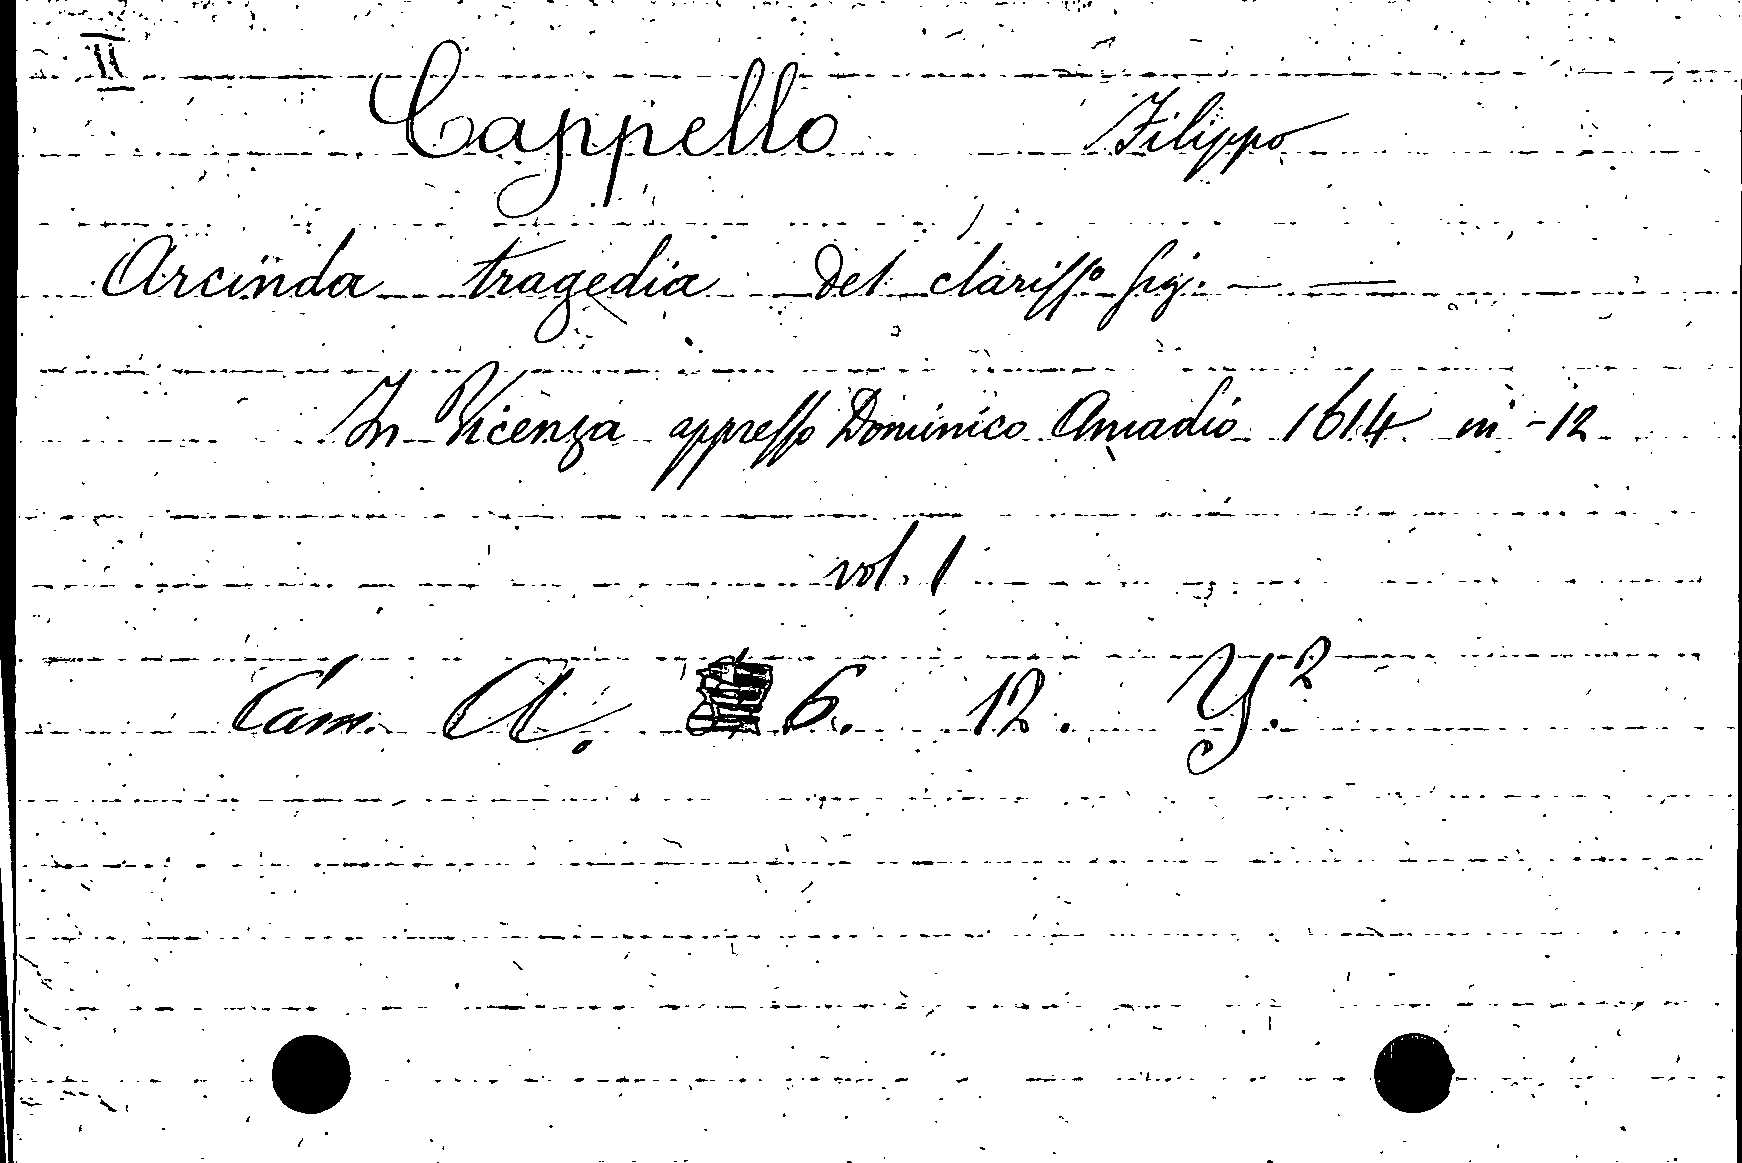 II
Cappello Filippo
Arcinda tragedia del clariſſo ſig. — —
In Vicenza appreſſo Dominico Amadio 1614 in-12
vol. 1
Cam. A. 6. 12. Y.2